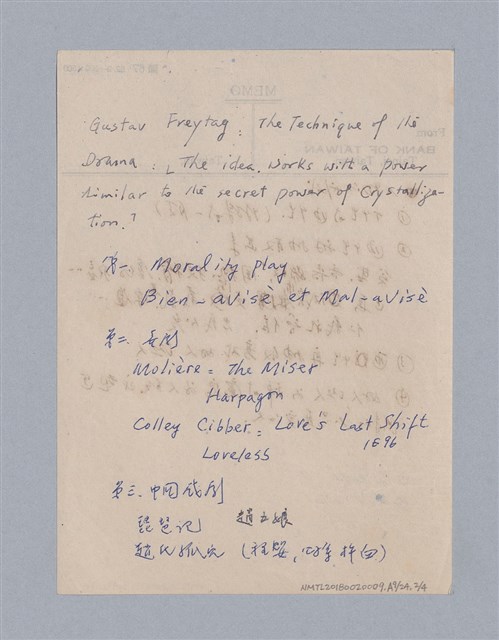 Gustav Freytag: The Technique of the
Drama: 「The idea works with a power
similar to the secret power of Crystalliza-
tion.」
第一. Morality play
Bien-avisè et Mal-avisè
第二. 喜劇
Molière: The Miser
Harpagon
Colley Cibber: Love's Last Shift
1696
Loveless
第三. 中国戯剧
琵琶记 趙五娘
趙氏孤兒 (程嬰,
NMTL20180020009.A9/24.2/4
MEMO
From
BANK OF TAIWAN